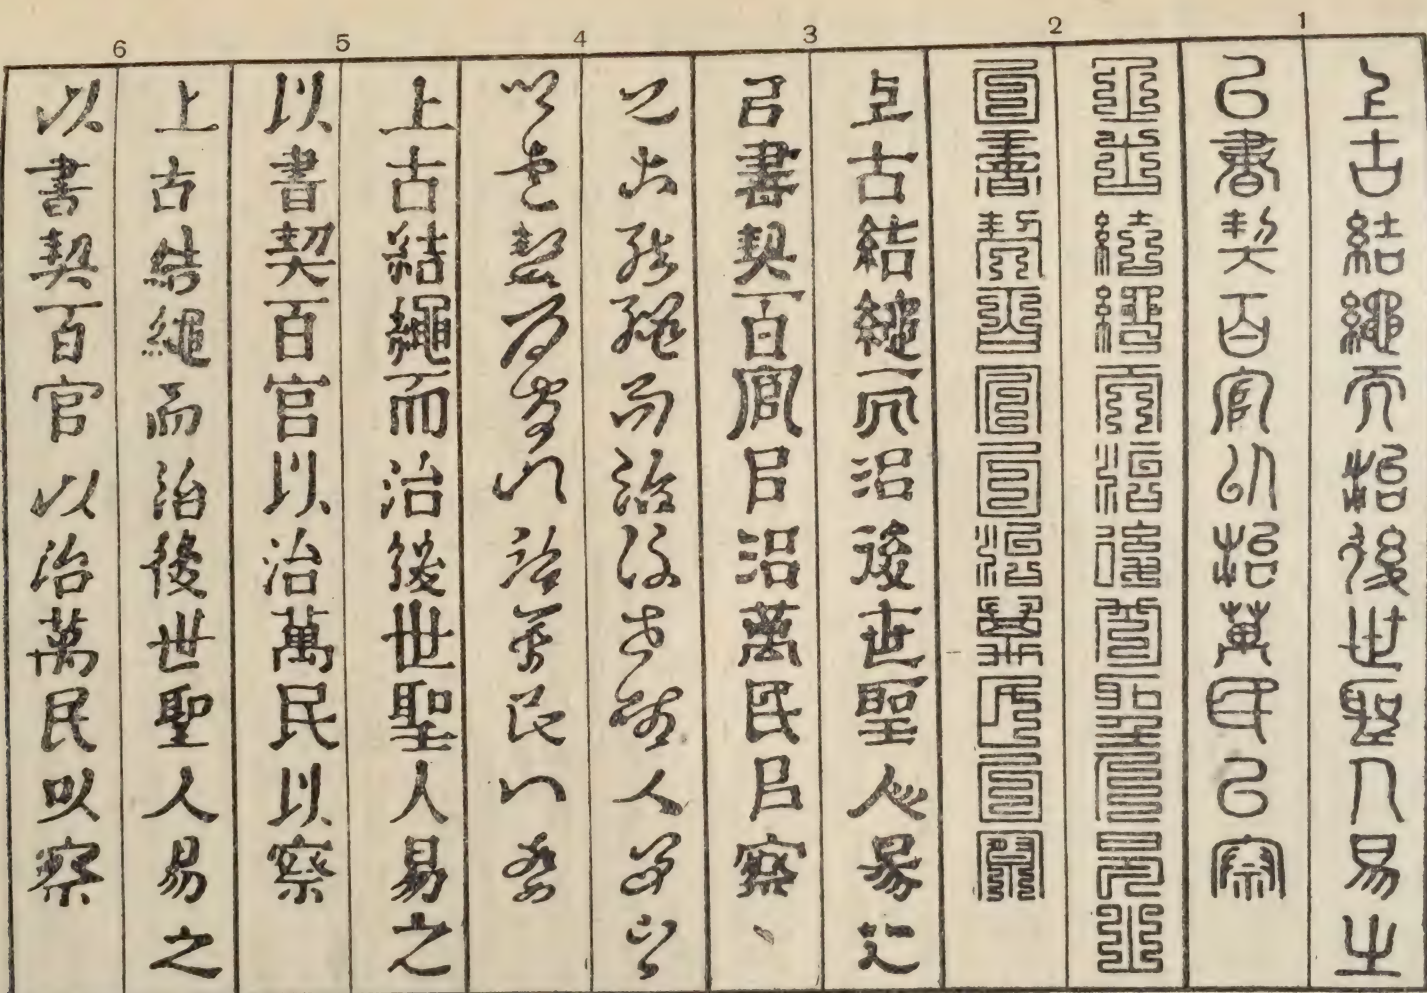 1
上古結繩而治後世聖人易之
以書契百官以治萬民以察
2
上古結繩而治後世聖人易之
以書契百官以治萬民以察
3
上古結繩而治後世聖人易之
以書契百官以治萬民以察、
4
上古結繩而治後世聖人易之
以書契百官以治萬民以察
5
上古結繩而治後世聖人易之
以書契百官以治萬民以察
6
上古結繩而治後世聖人易之
以書契百官以治萬民以察